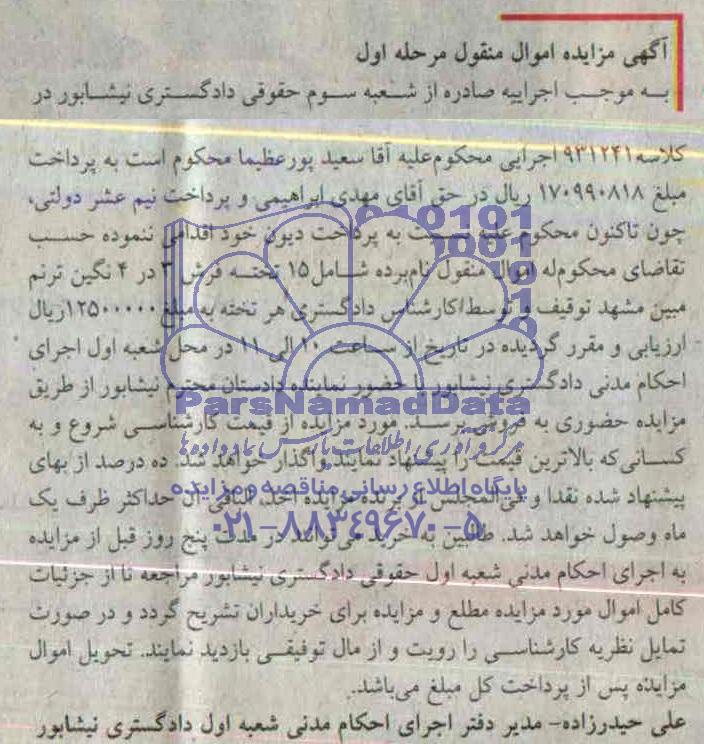 آگهی مزایده اموال منقول مرحله اول
به موجب اجراییه صادره از شعبه سوم حقوقی دادگستری نیشابور در
کلاسه ۹۳۱۲۴۱ اجرایی محکوم‌علیه آقا سعید پورعظیما محکوم است به پرداخت
مبلغ ۱۷۰۹۹۰۸۱۸ ریال در حق آقای مهدی ابراهیمی و پرداخت نیم عشر دولتی،
چون تاکنون محکوم علیه نسبت به پرداخت دیون خود اقدامی ننموده حسب
تقاضای محکوم‌له اموال منقول نامبرده شامل ۱۵ تخته فرش ۳ در ۴ نگین ترنم
مبین مشهد توقیف و توسط کارشناس دادگستری هر تخته به مبلغ ۱۲۵۰۰۰۰۰ ریال
ارزیابی و مقرر گردیده در تاریخ از ساعت ۱۰ الی ۱۱ در محل شعبه اول اجرای
احکام مدنی دادگستری نیشابور با حضور نماینده دادستان محترم نیشابور از طریق
مزایده حضوری به فروش برسد. مورد مزایده از قیمت کارشناسی شروع و به
کسانی‌که بالاترین قیمت را پیشنهاد نمایند واگذار خواهد شد. ده درصد از بهای
پیشنهاد شده نقدا و فی‌المجلس از برنده مزایده اخذ، الباقی آن حداکثر ظرف یک
ماه وصول خواهد شد. طالبین به خرید می‌توانند در مدت پنج روز قبل از مزایده
به اجرای احکام مدنی شعبه اول حقوقی دادگستری نیشابور مراجعه تا از جزئیات
کامل اموال مورد مزایده مطلع و مزایده برای خریداران تشریح گردد و در صورت
تمایل نظریه کارشناسی را رویت و از مال توقیفی بازدید نمایند. تحویل اموال
مزایده پس از پرداخت کل مبلغ می‌باشد.
علی حیدرزاده- مدیر دفتر اجرای احکام مدنی شعبه اول دادگستری نیشابور
ParsNamadData
مرکز فرآوری اطلاعات پارس نماد داده‌ها
پایگاه اطلاع رسانی مناقصه و مزایده
۰۲۱-۸۸۳۴۹۶۷۰-۵